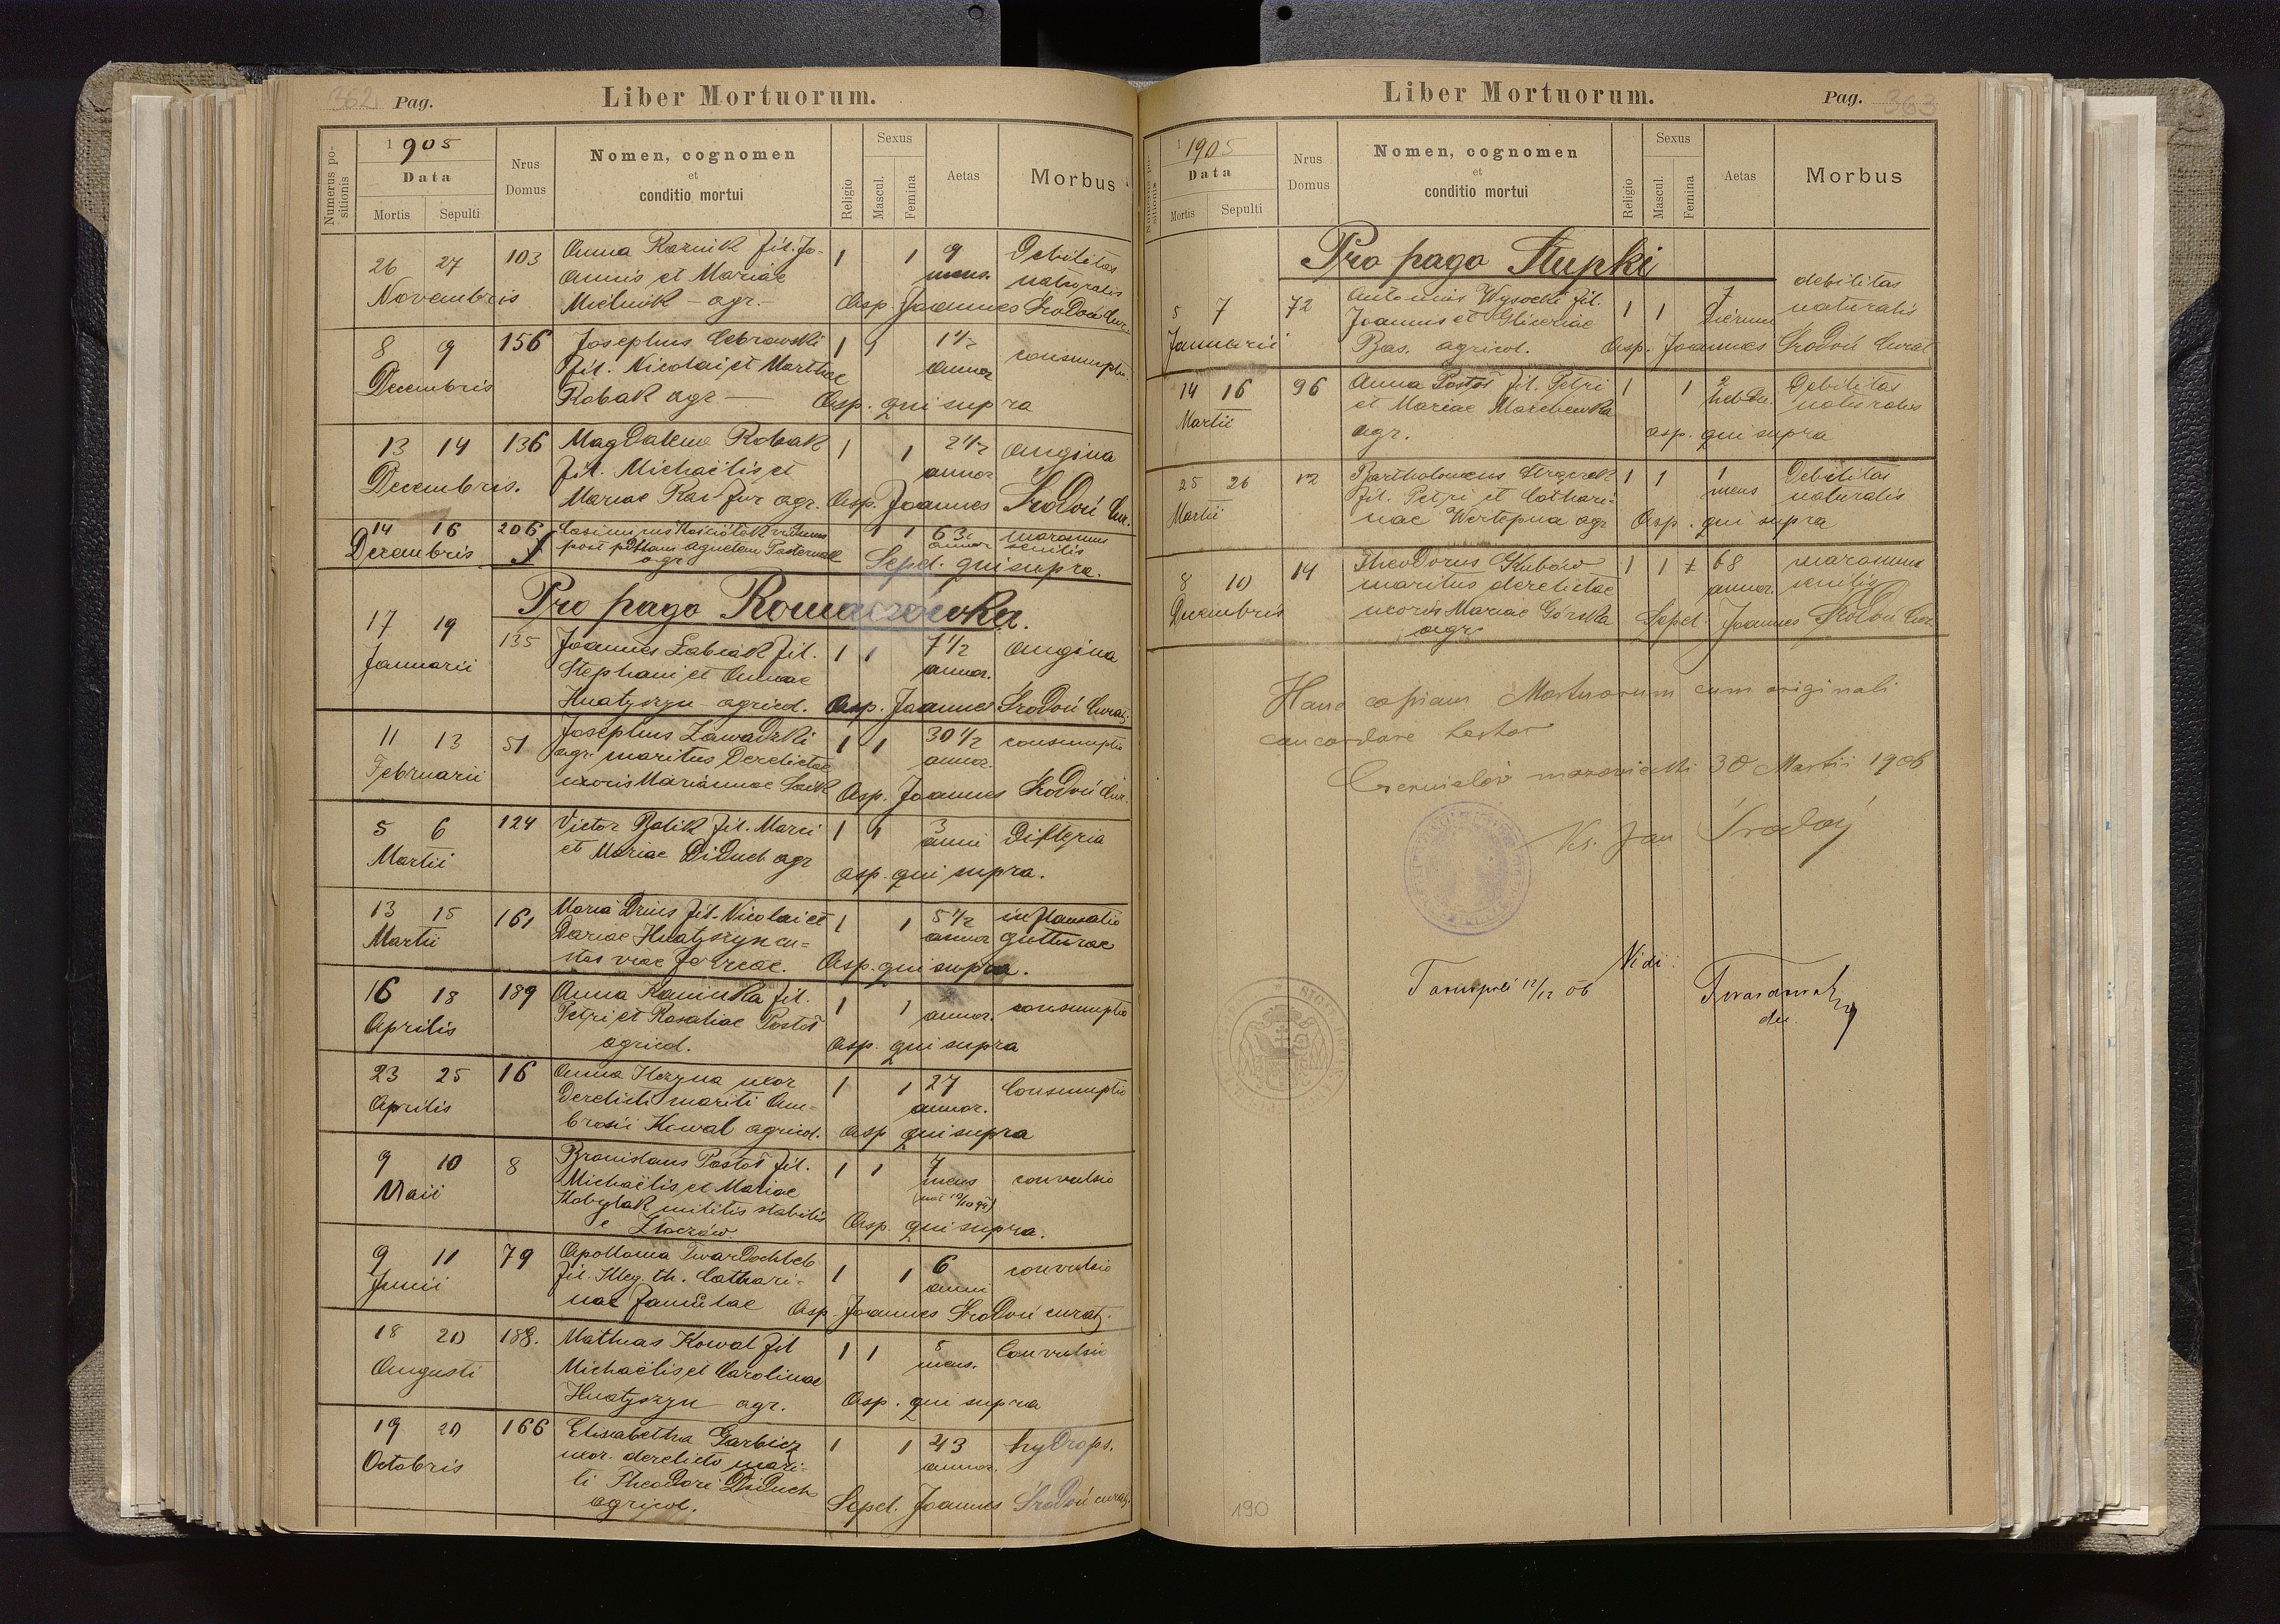 362 Pag.
Liber Mortuorum.
Numerus positionis
1905
Data
Mortis Sepulti
Nrus Domus
Nomen, cognomen
et
conditio mortui
Religio
Sexus
Mascul.
Femina
Aetas
Morbus
26 27 103 Anna Raznik fil. Jo- 1 1 9 Debilitas
annis et Mariae mens. naturalis
Novembris Mielnik - agr. - Asp. Joannes Środoń Cur.
8 9 156 Josephus Cebrowski 1 1 1 1/2 consumptio
Decembris fil. Nicolai et Marthae annor
Robak agr — Asp. qui supra
13 14 136 Magdalena Robak 1 1 2 1/2 angina
Decembris. fil. Michaëlis et annor
Mariae agr. Asp. Joannes Środoń Cur.
14 16 206 Casimirus Kościółek viduus 1 1 63 marasmus
Decembris post Agnetem Pasternak annor senilis
agr Sepel. qui supra.
Pro pago Romanówka.
17 19 135 Joannes Łabiak fil. 1 1 7 1/2 angina
Januarii Stephani et Annae annor.
Hnatyszyn - agricol. Asp. Joannes Środoń Curat.
11 13 51 Josephus Zawadzki 1 1 30 1/2 consumptio
Februarii agr. maritus derelictae annor.
uxoris Mariannae Asp. Joannes Środoń Cur.
5 6 124 Victor Balik fil. Marci 1 1 3 Difteria
Martii et Mariae Diduch agr anni
asp. qui supra.
13 15 161 Maria fil. Nicolai et 1 1 5 1/2 inflamatio
Martii Dariae Hnatyszyn cu= annor gutturae
stos viae ferreae. Asp. qui supra.
16 18 189 Anna Kaminka fil. 1 1 consumptio
Aprilis Petri et Rosaliae Postoł annor.
agricol. Asp. qui supra
23 25 16 Anna uxor 1 1 27 Consumptio
Aprilis derelicti mariti Am= annor.
brosii Kowal agricol. Asp qui supra
9 10 8 Bronislaus Postoł fil. 1 1 7 convulsio
Maii Michaëlis et Mariae mens
Kobylak militis stabilis
e Złoczów Asp. qui supra.
9 11 79 Apollonia Twardochleb 1 1 6 convulsio
Junii fil. Illeg. th. Cathari- anni
nae famulae Asp. Joannes Środoń curat.
18 20 188. Mathias Kowal fil 1 1 8 Convulsio
Augusti Michaëlis et Carolinae mens.
Hnatyszyn - agr. Asp. qui supra
19 20 166 Elisabetha Garbicz 1 1 43 hydrops.
Octobris uxor. derelicto mari= annor.
ti Theodori Diduch
agricol. Sepel. Joannes Środoń curat.
Liber Mortuorum.
Pag. 363
Numerus positionis
1905
Data
Mortis Sepulti
Nrus Domus
Nomen, cognomen
et
conditio mortui
Religio
Sexus
Mascul.
Femina
Aetas
Morbus
Pro pago Stupki
5 7 72 Antonius Wysocki fil. 1 1 7 debilitas
Januarii Joannis et Gliceriae dierum naturalis
Bas. agricol. Asp. Joannes Środoń Curat
14 16 96 Anna Postoł fil. Petri 1 1 2 Debilitas
Martii et Mariae Marchewka hebd. naturalis
agr. asp. qui supra
25 26 12 Bartholomeus 1 1 1 Debilitas
Martii fil. Petri et Cathari= mens naturalis
nae Wertepna agr Asp. qui supra
8 10 14 Theodorus Kubów 1 1 68 marasmus
Decembris maritus derelictae annor. senilis
uxoris Mariae Górska Sepel. Joannes Środoń Cur.
agr
Hanc copiam Mortuorum cum originali
concordare testor
Czernielów mazowiecki 30 Martii 1906
Ks. Jan Środoń
Vidi:
Tarnopoli 12/12 06
190